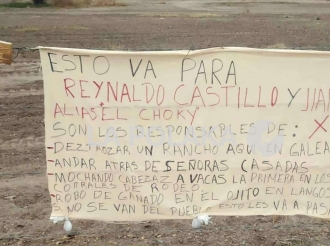 ESTO VA PARA
REYNALDO CASTILLO Y JIA
ALIAS "EL CHOKY"
SON LOS RESPONSABLES DE: X
-DEZTROZAR UN RANCHO AQUI EN GALEA
-ANDAR ATRAS DE SEÑORAS CASADAS
-MOCHANDO CABEZAZ A VACAS LA PRIMERA EN LOS
CORRALES DE RODEO
-ROBO DE GANADO EN EL OJITO EN LANGO
NO SE VAN DEL PUEBLO ESTO LES VA A PASA